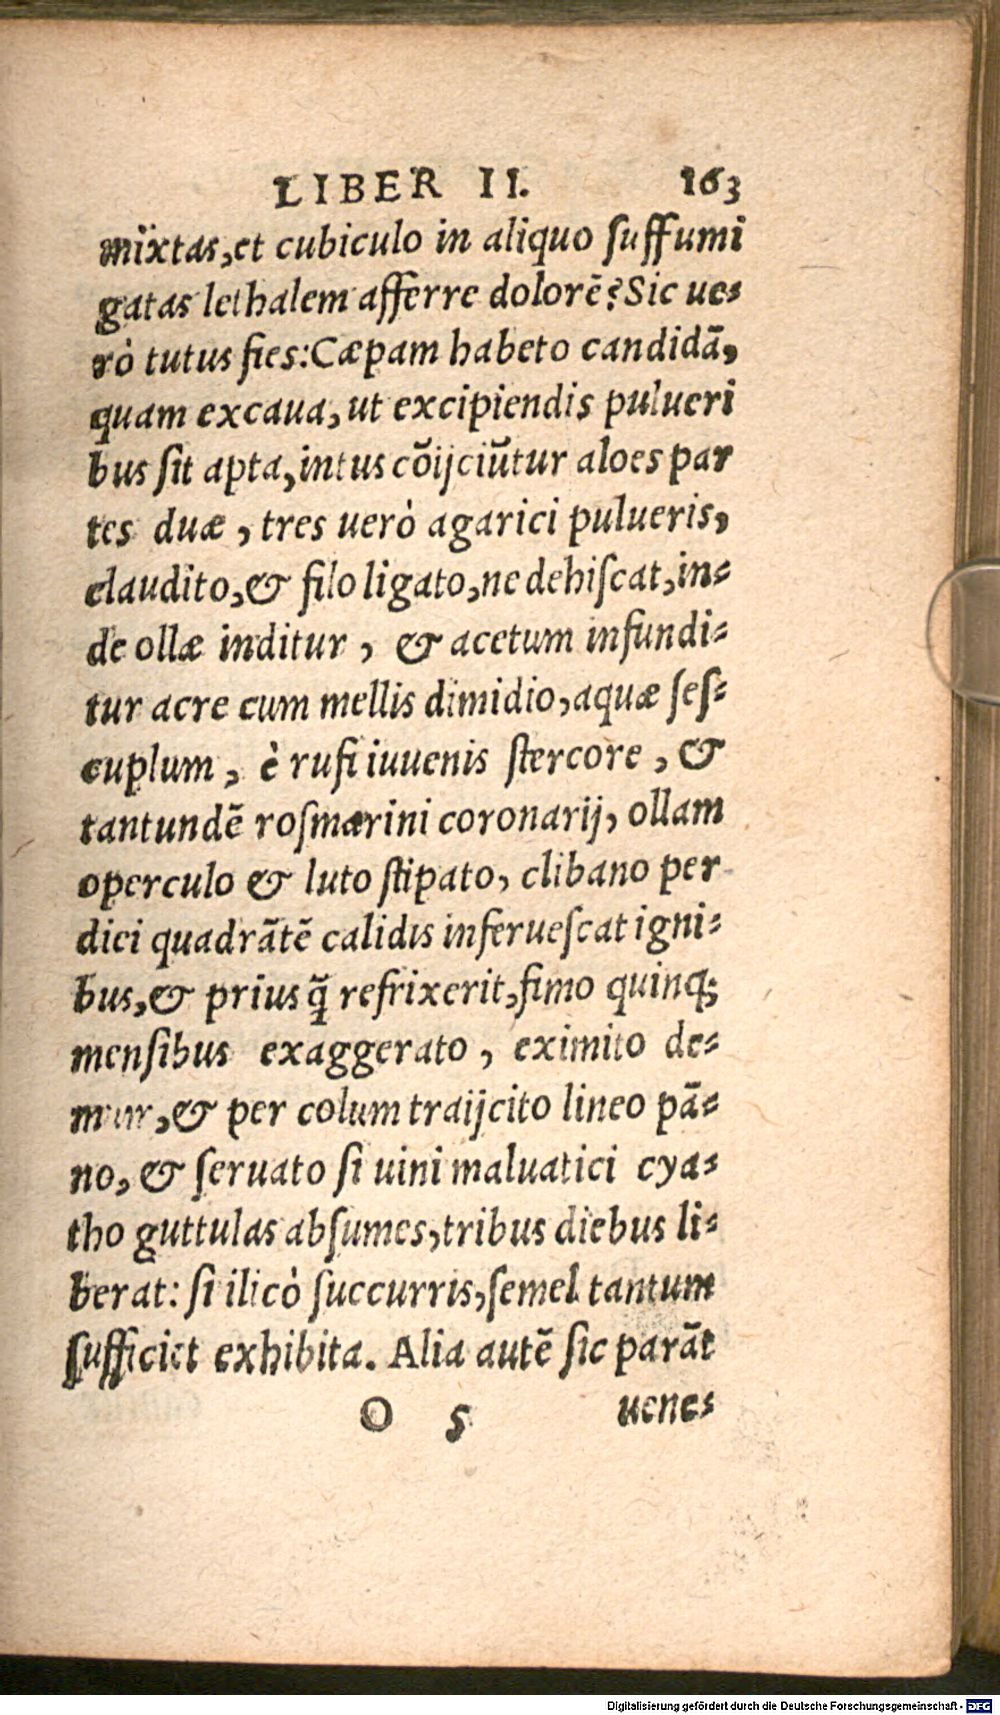 LIBER II. 163
mixtas, et cubiculo in aliquo ſuffumi
gatas lethalem afferre dolorē? Sic ue-
rò tutus fies: Cæpam habeto candidā,
quam excaua, ut excipiendis pulueri
bus ſit apta, intus cōijciūtur aloes par
tes duæ, tres uerò agarici pulueris,
claudito, & filo ligato, ne dehiſcat, in-
de ollæ inditur, & acetum infundi-
tur acre cum mellis dimidio, aquæ ſeſ-
cuplum, è rufi iuuenis ſtercore, &
tantundē roſmarini coronarij, ollam
operculo & luto ſtipato, clibano per
dici quadrātē calidis inferueſcat igni-
bus, & prius q̃ refrixerit, fimo quinq;
menſibus exaggerato, eximito de-
mum, & per colum traijcito lineo pā-
no, & ſeruato ſi uini maluatici cya-
tho guttulas abſumes, tribus diebus li-
berat: ſi ilicò ſuccurris, ſemel tantum
ſufficiet exhibita. Alia autē ſic parāt
O 5 uene-
Digitalisierung gefördert durch die Deutsche Forschungsgemeinschaft - DFG